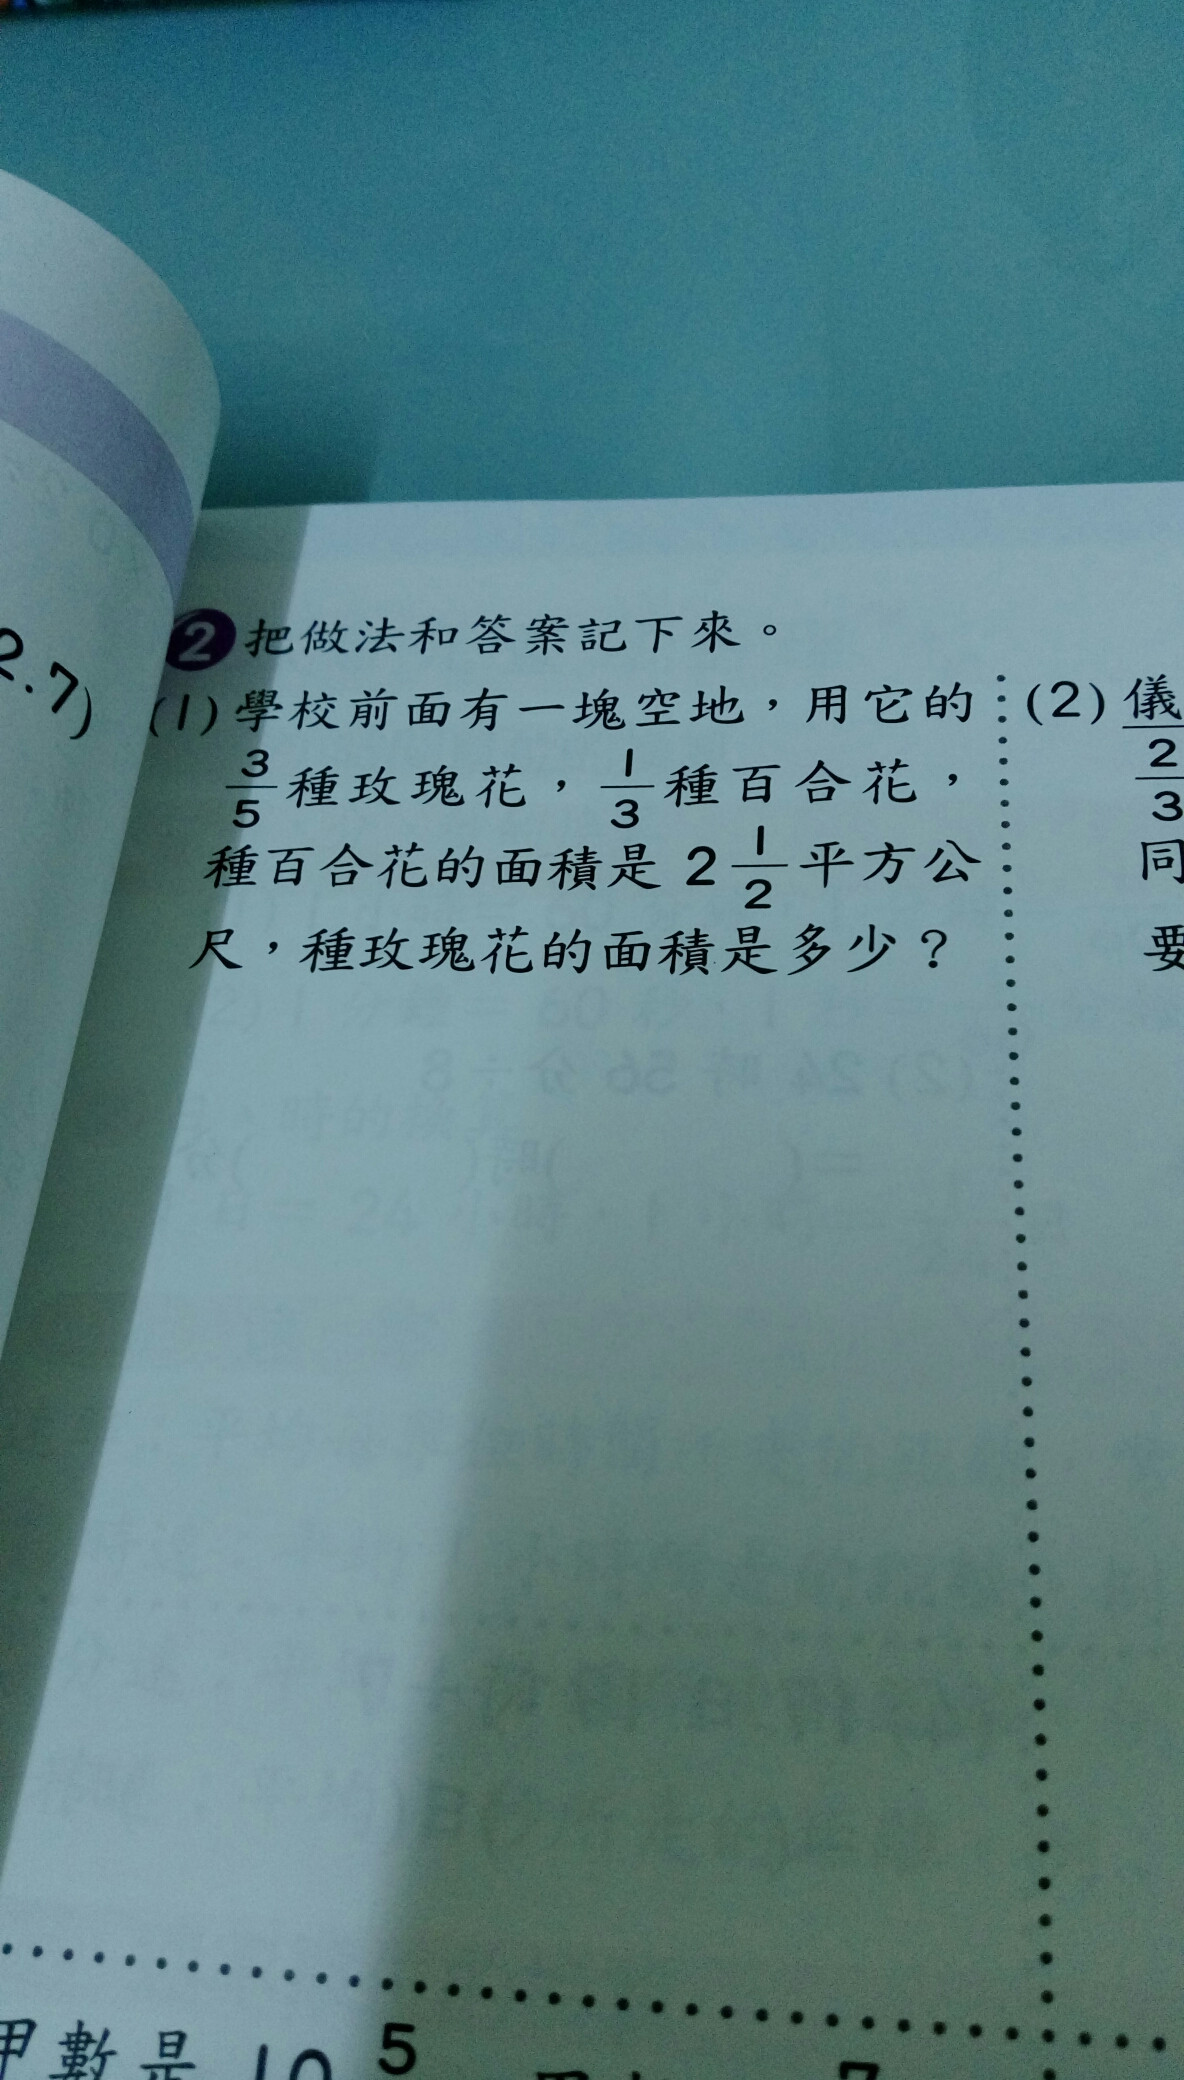 2.7)
❷ 把做法和答案記下來。
(1) 學校前面有一塊空地，用它的
3/5 種玫瑰花，1/3 種百合花，
種百合花的面積是 2 1/2 平方公
尺，種玫瑰花的面積是多少？
(2) 儀
2/3
同
要
甲數是 10 5
7